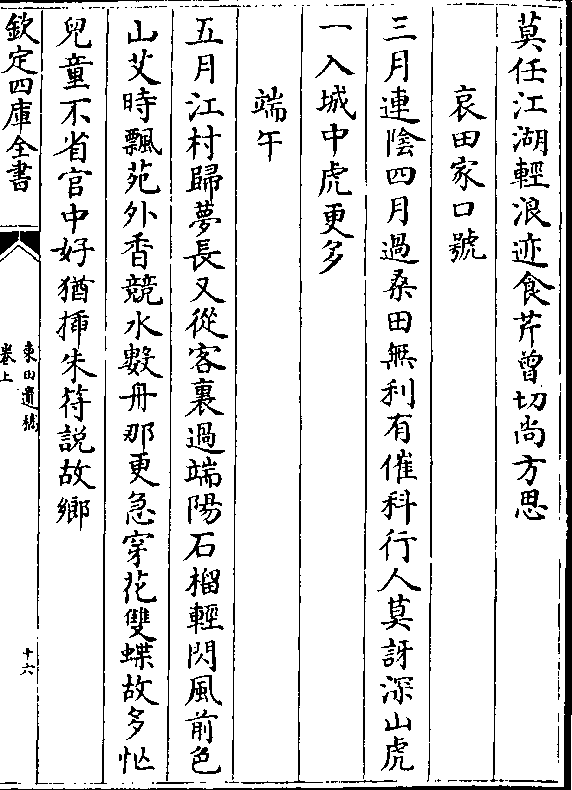 莫任江湖輕浪迹食芹曾切尚方思
哀田家口號
三月連陰四月過桑田無利有催科行人莫訝深山虎
一入城中虎更多
端午
五月江村歸夢長又從客裏過端陽石榴輕閃風前色
山艾時飄苑外香競水數舟那更急穿花雙蝶故多忙
兒童不省官中好猶揷朱符說故鄉
欽定四庫全書
東田遺稿
卷上
十六